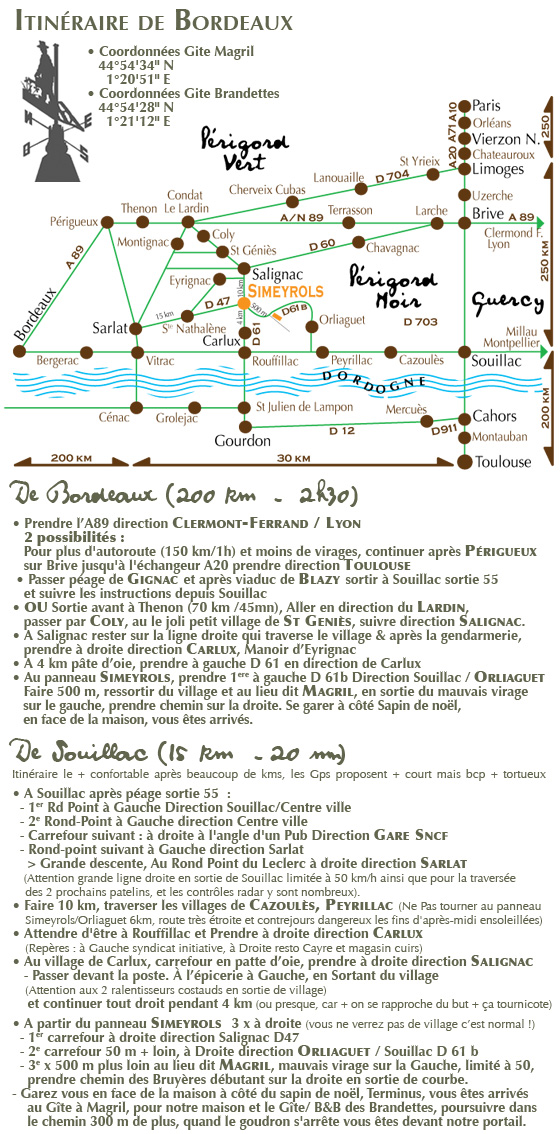 ITINÉRAIRE DE BORDEAUX
• Coordonnées Gite Magril
44°54'34" N
1°20'51" E
• Coordonnées Gite Brandettes
44°54'28" N
1°21'12" E
N
E
O
S
Périgord
Vert
Paris
Orléans
Vierzon N.
Chateauroux
Limoges
A20 A71 A10
250
St Yrieix
D 704
Lanouaille
Cherveix Cubas
Uzerche
Condat
Le Lardin
Thenon
Périgueux
A/N 89
Terrasson
Larche
Brive
A 89
Clermond F.
Lyon
Coly
Montignac
St Géniès
D 60
Chavagnac
A 89
Salignac
Eyrignac
SIMEYROLS
10 km
Périgord
Noir
Quercy
250 KM
Bordeaux
D 47
15 km
500 m
D61B
Sarlat
Ste Nathalène
4 km
D 61
Orliaguet
D 703
Carlux
Millau
Montpellier
Bergerac
Vitrac
Rouffillac
Peyrillac
Cazoulès
Souillac
DORDOGNE
Cénac
Grolejac
St Julien de Lampon
Mercuès
Cahors
200 KM
Gourdon
D 12
D911
Montauban
200 KM
30 KM
Toulouse
De Bordeaux (200 km - 2h30)
• Prendre l'A89 direction CLERMONT-FERRAND / LYON
2 possibilités :
Pour plus d'autoroute (150 km/1h) et moins de virages, continuer après PÉRIGUEUX
sur Brive jusqu'à l'échangeur A20 prendre direction TOULOUSE
• Passer péage de GIGNAC et après viaduc de BLAZY sortir à Souillac sortie 55
et suivre les instructions depuis Souillac
• OU Sortie avant à Thenon (70 km /45mn), Aller en direction du LARDIN,
passer par COLY, au le joli petit village de ST GENIÈS, suivre direction SALIGNAC.
• A Salignac rester sur la ligne droite qui traverse le village & après la gendarmerie,
prendre à droite direction CARLUX, Manoir d'Eyrignac
• A 4 km pâte d'oie, prendre à gauche D 61 en direction de Carlux
• Au panneau SIMEYROLS, prendre 1ere à gauche D 61b Direction Souillac / ORLIAGUET
Faire 500 m, ressortir du village et au lieu dit MAGRIL, en sortie du mauvais virage
sur le gauche, prendre chemin sur la droite. Se garer à côté Sapin de noël,
en face de la maison, vous êtes arrivés.
De Souillac (15 km - 20 mn)
Itinéraire le + confortable après beaucoup de kms, les Gps proposent + court mais bcp + tortueux
• A Souillac après péage sortie 55 :
- 1er Rd Point à Gauche Direction Souillac/Centre ville
- 2e Rond-Point à Gauche direction Centre ville
- Carrefour suivant : à droite à l'angle d'un Pub Direction GARE SNCF
- Rond-point suivant à Gauche direction Sarlat
> Grande descente, Au Rond Point du Leclerc à droite direction SARLAT
(Attention grande ligne droite en sortie de Souillac limitée à 50 km/h ainsi que pour la traversée
des 2 prochains patelins, et les contrôles radar y sont nombreux).
• Faire 10 km, traverser les villages de CAZOULÈS, PEYRILLAC (Ne Pas tourner au panneau
Simeyrols/Orliaguet 6km, route très étroite et contrejours dangereux les fins d'après-midi ensoleillées)
• Attendre d'être à Rouffillac et Prendre à droite direction CARLUX
(Repères : à Gauche syndicat initiative, à Droite resto Cayre et magasin cuirs)
• Au village de Carlux, carrefour en patte d'oie, prendre à droite direction SALIGNAC
- Passer devant la poste. À l'épicerie à Gauche, en Sortant du village
(Attention aux 2 ralentisseurs costauds en sortie de village)
et continuer tout droit pendant 4 km (ou presque, car + on se rapproche du but + ça tournicote)
• A partir du panneau SIMEYROLS 3 x à droite (vous ne verrez pas de village c'est normal !)
- 1er carrefour à droite direction Salignac D47
- 2e carrefour 50 m + loin, à Droite direction ORLIAGUET / Souillac D 61 b
- 3e x 500 m plus loin au lieu dit MAGRIL, mauvais virage sur la Gauche, limité à 50,
prendre chemin des Bruyères débutant sur la droite en sortie de courbe.
- Garez vous en face de la maison à côté du sapin de noël, Terminus, vous êtes arrivés
au Gîte à Magril, pour notre maison et le Gîte/ B&B des Brandettes, poursuivre dans
le chemin 300 m de plus, quand le goudron s'arrête vous êtes devant notre portail.